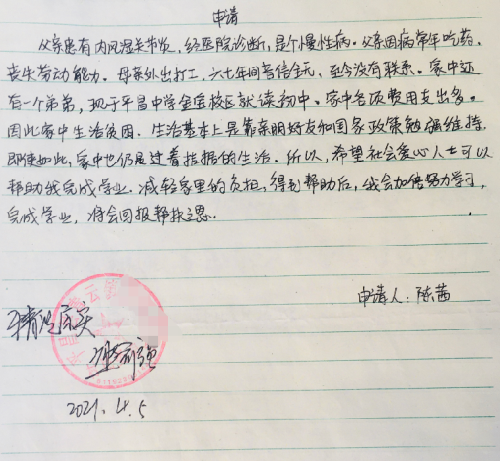 申请
父亲患有内风湿关节炎，经医院诊断，是个慢性病。父亲因病常年吃药，
丧失劳动能力。母亲外出打工，六七年间音信全无，至今没有联系。家中还
有一个弟弟，现于平昌中学金宝校区就读初中。家中各项费用支出多。
因此家中生活贫困。生活基本上是靠亲朋好友和国家政策勉强维持，
即使如此，家中也仍是过着拮据的生活。所以，希望社会爱心人士可以
帮助我完成学业，减轻家里的负担，得到帮助后，我会加倍努力学习，
完成学业，将会回报帮扶之恩.
申请人：陈茜
情况属实
2021.4.5